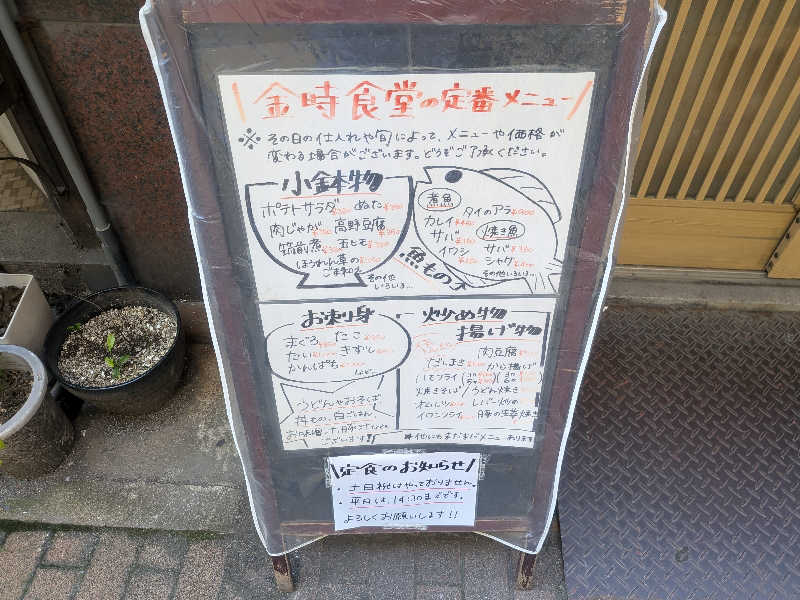 金時食堂の定番メニュー
※ その日の仕入れや旬によって、メニューや価格が
変わる場合がございます。どうぞご了承ください。
小鉢物
ポテトサラダ ぬた
肉じゃが 高野豆腐
筑前煮 五もく
ほうれん草の
ごま和え
その他
いろいろ…
魚もの
煮魚
タイのアラ
カレイ
サバ
イワシ
焼き魚
サバ
シャケ
その他いろいろ…
お刺身
まぐろ たこ
たい きずし
かんぱち
など
うどんやおそば
丼もの、白ごはん
お味噌汁、豚汁
ございます!!
炒め物
揚げ物
肉豆腐
だしまき から揚げ
ハモフライ
焼きそば/うどん焼き
レバー炒め
イワシフライ 豚の生姜焼き
※他にもまだまだメニューあります
定食のお知らせ
・土日祝はやっておりません。
・平日は、14:30までです。
よろしくお願いします!!